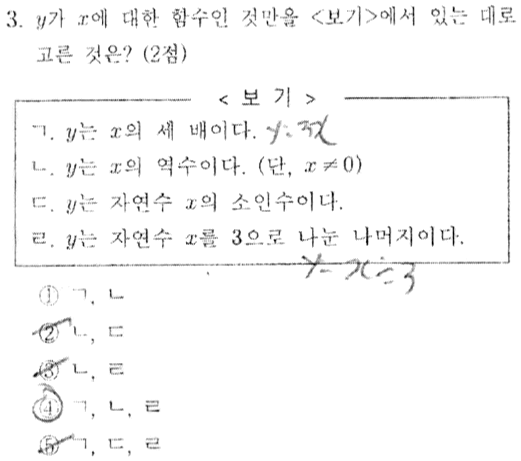 3. y가 x에 대한 함수인 것만을 <보기>에서 있는 대로
고른 것은? (2점)
< 보 기 >
ㄱ. y는 x의 세 배이다. y=3x
ㄴ. y는 x의 역수이다. (단, x≠0)
ㄷ. y는 자연수 x의 소인수이다.
ㄹ. y는 자연수 x를 3으로 나눈 나머지이다.
y= x÷3
① ㄱ, ㄴ
② ㄴ, ㄷ
③ ㄴ, ㄹ
④ ㄱ, ㄴ, ㄹ
⑤ ㄱ, ㄷ, ㄹ